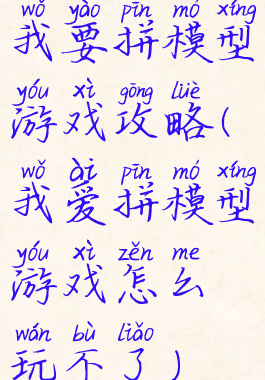 wǒ yào pīn mó xíng
我要拼模型
yóu xì gōng lüè
游戏攻略(
wǒ ài pīn mó xíng
我爱拼模型
yóu xì zěn me
游戏怎么
wán bù liǎo
玩不了)